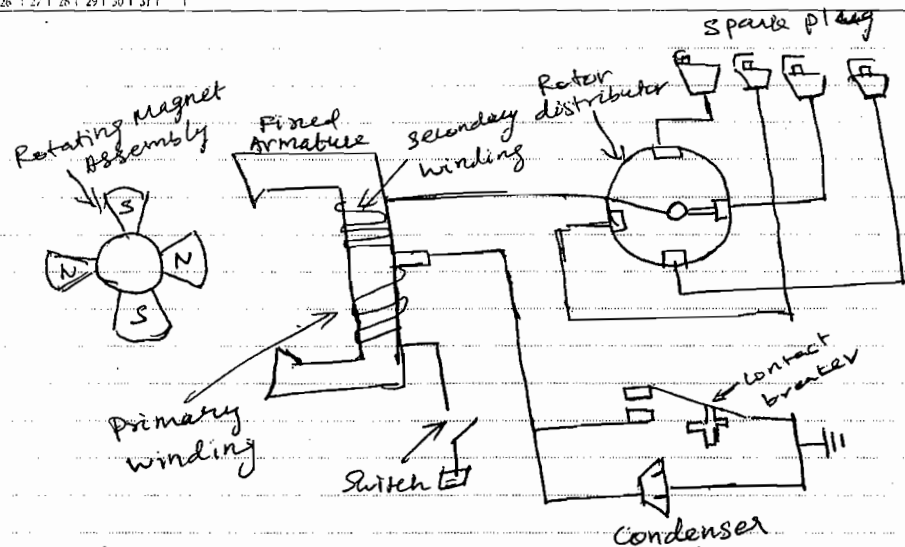 26 27 28 29 30 31
Spark plug
Rotating Magnet
Assembly
Fixed
Armature
Secondary
winding
Rotor
distributor
S
N
N
S
Primary
winding
Switch
Contact
breaker
Condenser